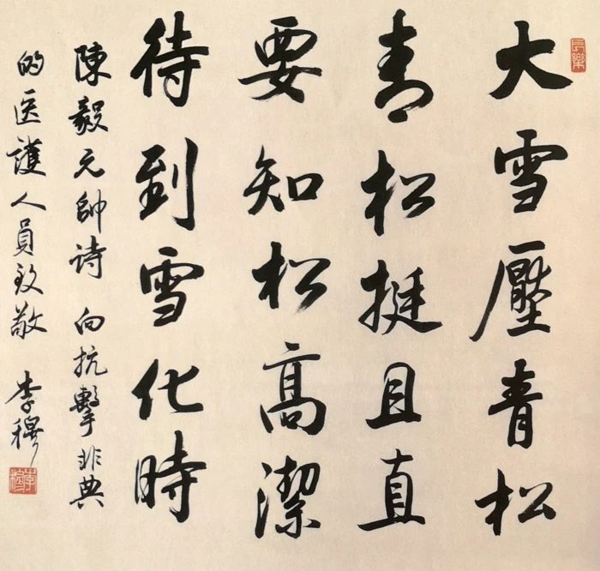 大雪壓青松
青松挺且直
要知松高潔
待到雪化時
陳毅元帥诗 向抗擊非典
的医護人員致敬 李穆